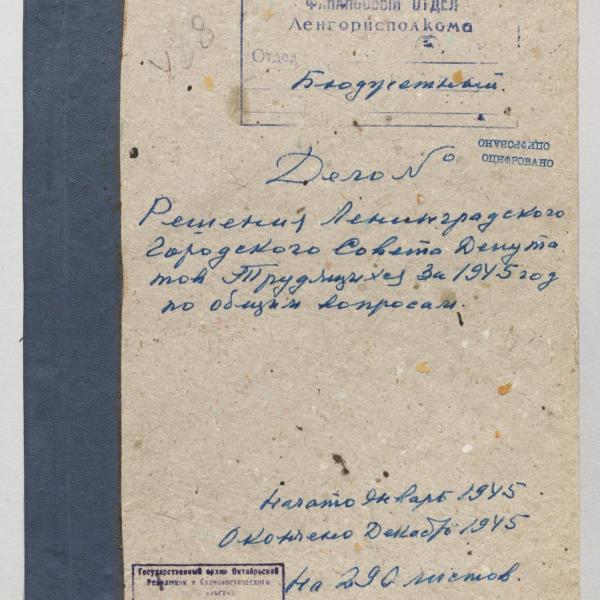 ФИНАНСОВЫЙ ОТДЕЛ
Ленгорисполкома
Отдел
Бюджетный
ОЦИФРОВАНО
ОЦИФРОВАНО
Дело №
Решения Ленинградского
Городского Совета Депута
тов Трудящихся за 1945 год
по общим вопросам.
Начато Январь 1945
Окончено Декабрь 1945
На 290 листов.
Государственный архив Октябрьской
Революции и Социалистического